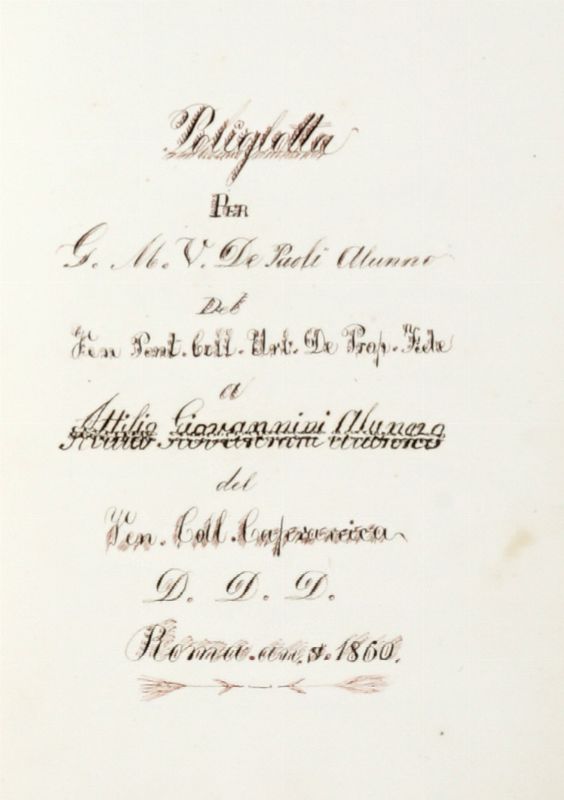 Poliglotta
PER
G. M. V. De Paoli Alunno
Del
Ven Pont. Coll. Urb. De Prop. Fide
a
Attilio Giovannini Alunno
del
Ven. Coll. Capranica
D. D. D.
Roma. an. 1860.